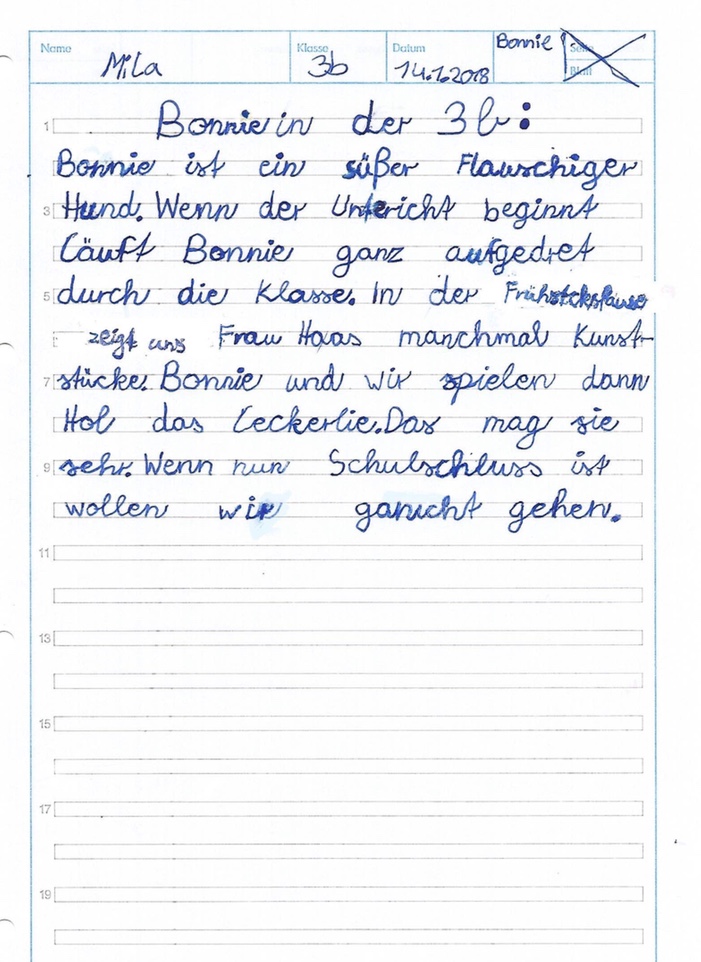 Name Mila Klasse 3b Datum 14.1.2018 Bonnie Seite
Blatt
1 Bonnie in der 3b:
Bonnie ist ein süßer Flauschiger
3 Hund. Wenn der Untericht beginnt
läuft Bonnie ganz aufgedret
5 durch die Klasse. In der Frühstckspause
zeigt uns Frau Haas manchmal Kunst-
7 stücke. Bonnie und wir spielen dann
Hol das Leckerlie. Das mag sie
9 sehr. Wenn nun Schulschluss ist
wollen wir garnicht gehen.
11
13
15
17
19